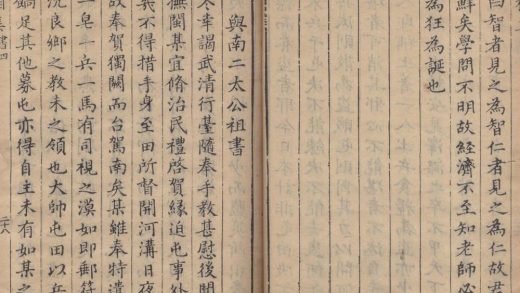 曰智者見之為智仁者見之為仁故君
鮮矣學問不明故經濟不至知老師必
為狂為誕也
與南二太公祖書
冬幸謁武清行臺隨奉手教甚慰後聞
撫閩某宜脩治民禮啓賀緣迫屯事外
義不得措手身至田所督開河溝日夜
故奉賀獨闕而台駕南矣某雖奉特遣
一皂一兵一馬有司視之漠如即郵符
沉良鄉之教未之領也大師屯田以兵
足其他募屯亦得自主未有如某之
集書四